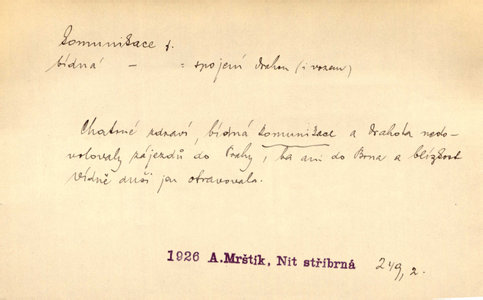 Komunikace f.
bídná — = spojení drahou (i vozem)
Chatrné zdraví, bídná komunikace a drahota nedo-
volovaly zájezdů do Prahy, ba ani do Brna a blízkost
Vídně duši jen otravovala.
1926 A.Mrštík, Nit stříbrná 249, 2.